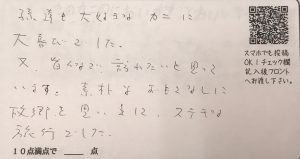 孫達も大好きなカニに
大喜びでした。
又、皆んなで、訪れたいと思って
います。素朴なおもてなしに
故郷を思い、ステキな
旅行でした。
10点満点で 点
スマホでも投稿
OK!チェック欄
記入後フロント
へお渡し下さい。